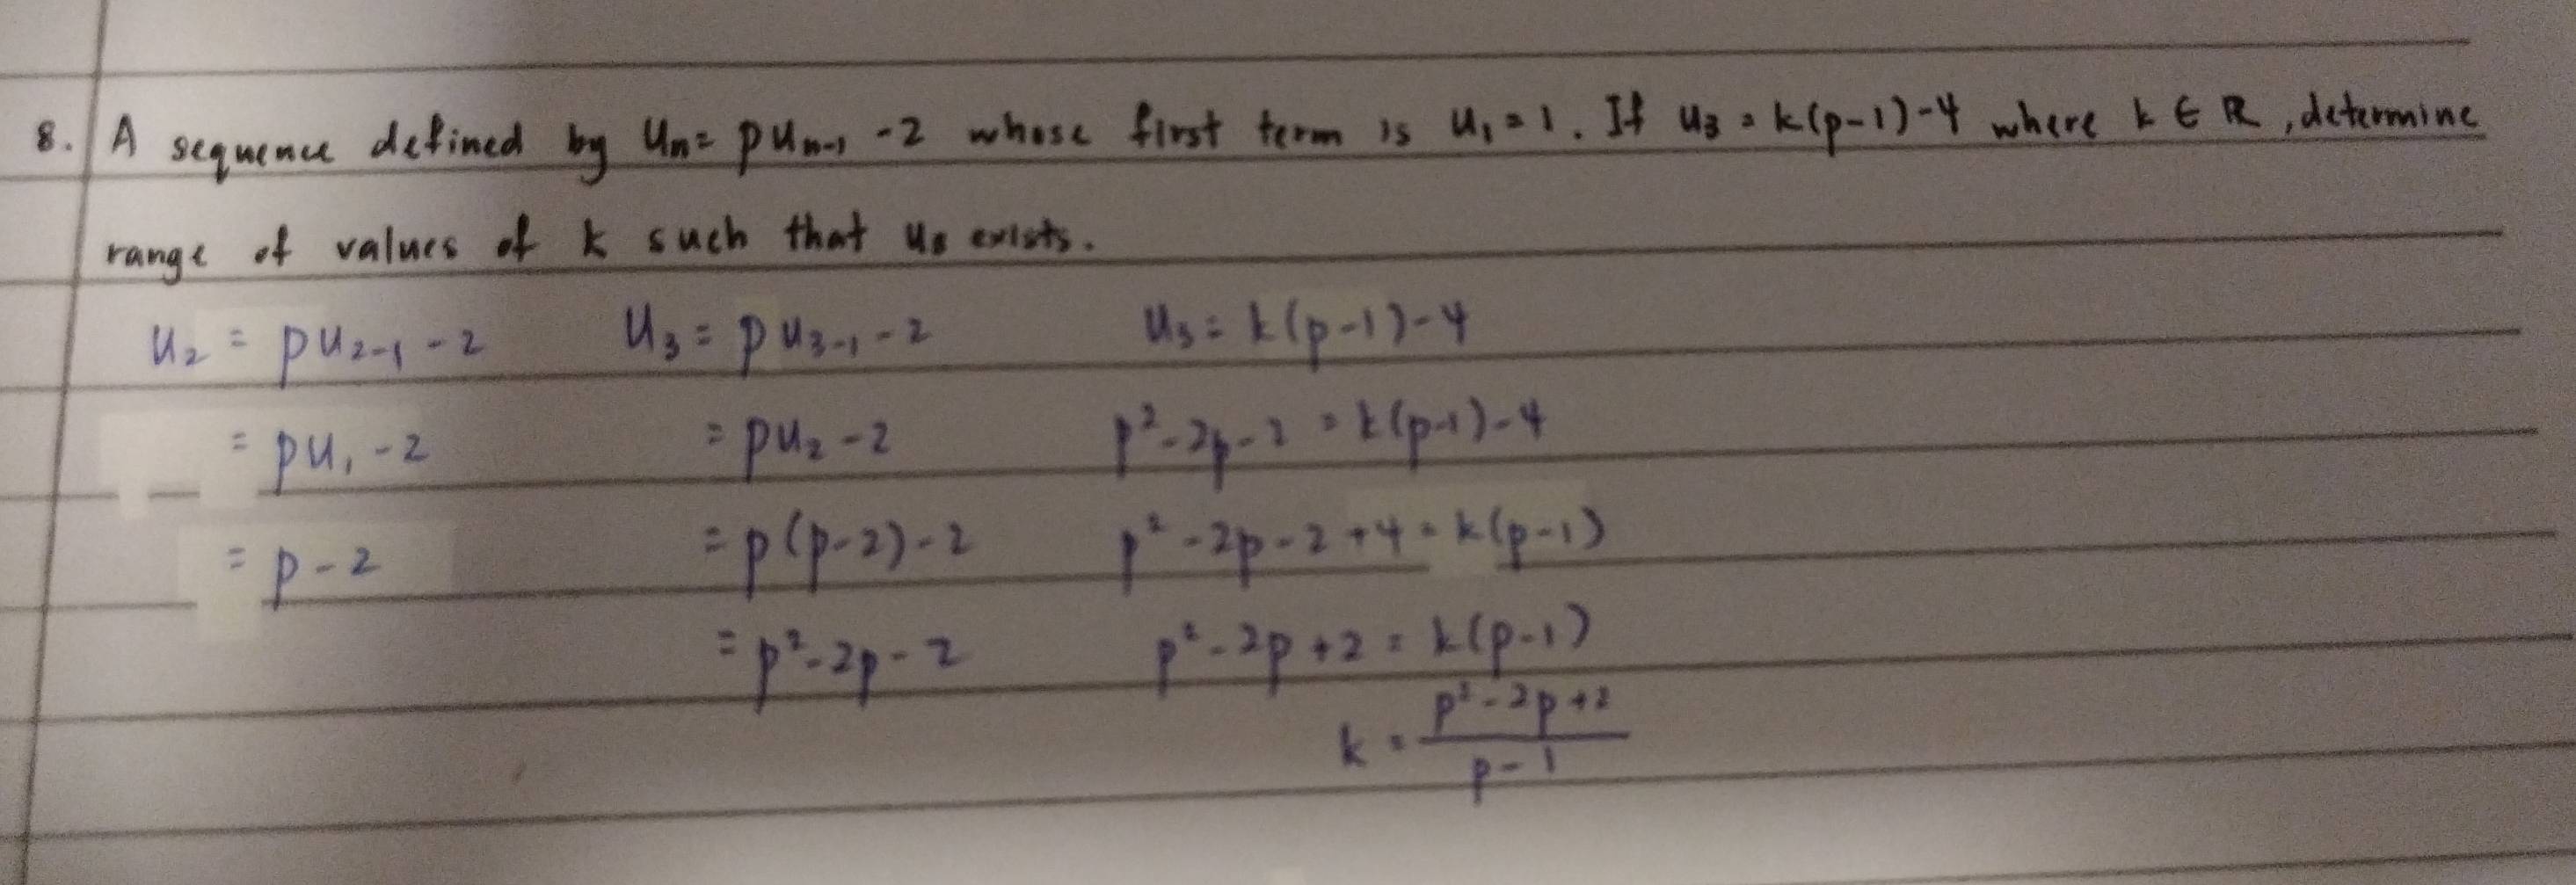 8. A sequence defined by uₙ = puₙ₋₁ - 2 whose first term is u₁ = 1. If u₃ = k(p-1)-4 where k ∈ ℝ, determine
range of values of k such that u₃ exists.
u₂ = pu₂₋₁ - 2 u₃ = pu₃₋₁ - 2 u₃ = k(p-1)-4
= pu₁ - 2 = pu₂ - 2 p²-2p-2 = k(p-1)-4
= p - 2 = p(p-2)-2 p²-2p-2+4 = k(p-1)
= p²-2p-2 p²-2p+2 = k(p-1)
k = (p²-2p+2)/(p-1)